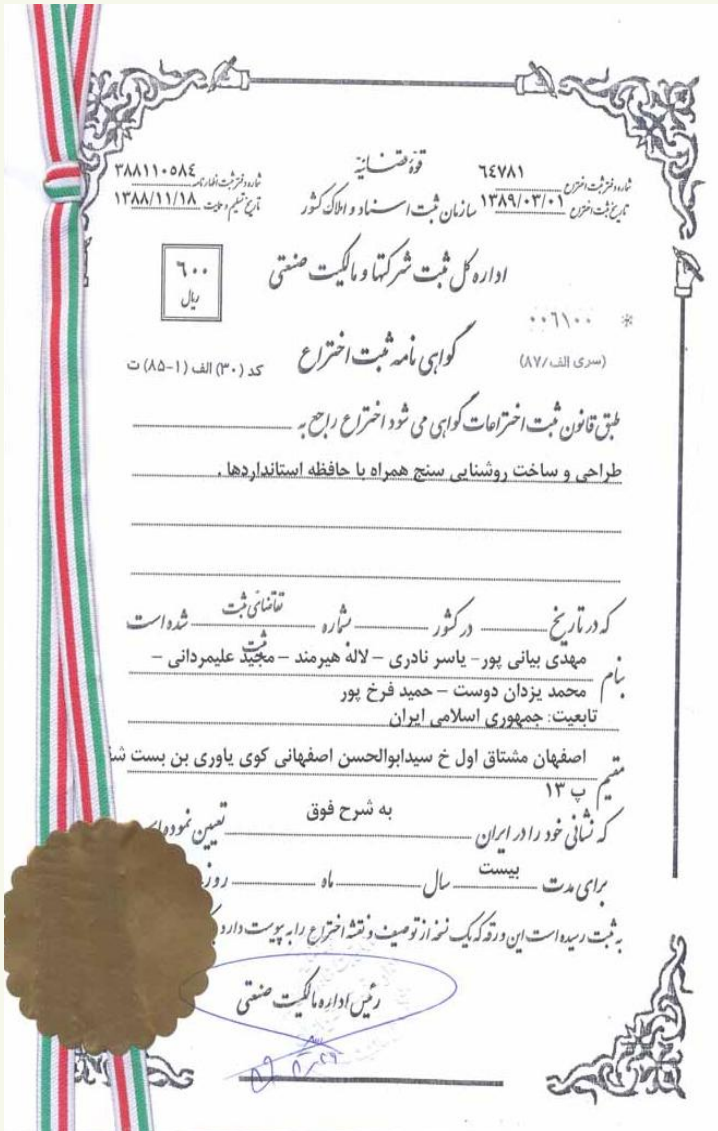 قوهٔ قضائیه
شماره دفتر ثبت اختراع ٦٤٧٨١
تاریخ ثبت اختراع ١٣٨٩/٠٣/٠١
سازمان ثبت اسناد و املاک کشور
شماره دفتر ثبت اظهارنامه ٣٨٨١١٠٥٨٤
تاریخ تسلیم و حمایت ١٣٨٨/١١/١٨
اداره کل ثبت شرکتها و مالکیت صنعتی
٦٠٠
ریال
٠٠٦١٠٠ *
(سری الف/٨٧)
گواهی نامه ثبت اختراع
کد (٣٠) الف (١-٨٥) ت
طبق قانون ثبت اختراعات گواهی می شود اختراع راجع به
طراحی و ساخت روشنایی سنج همراه با حافظه استانداردها .
که در تاریخ در کشور بشماره تقاضای ثبت شده است
ثبت
بنام مهدی بیانی پور- یاسر نادری – لاله هیرمند – مجید علیمردانی –
محمد یزدان دوست – حمید فرخ پور
تابعیت: جمهوری اسلامی ایران
مقیم اصفهان مشتاق اول خ سیدابوالحسن اصفهانی کوی یاوری بن بست
پ ١٣
که نشانی خود را در ایران به شرح فوق تعیین نموده
برای مدت بیست سال ماه روز
به ثبت رسیده است این ورقه که یک نسخه از توصیف و نقشه اختراع را به پیوست دارد
رئیس اداره مالکیت صنعتی